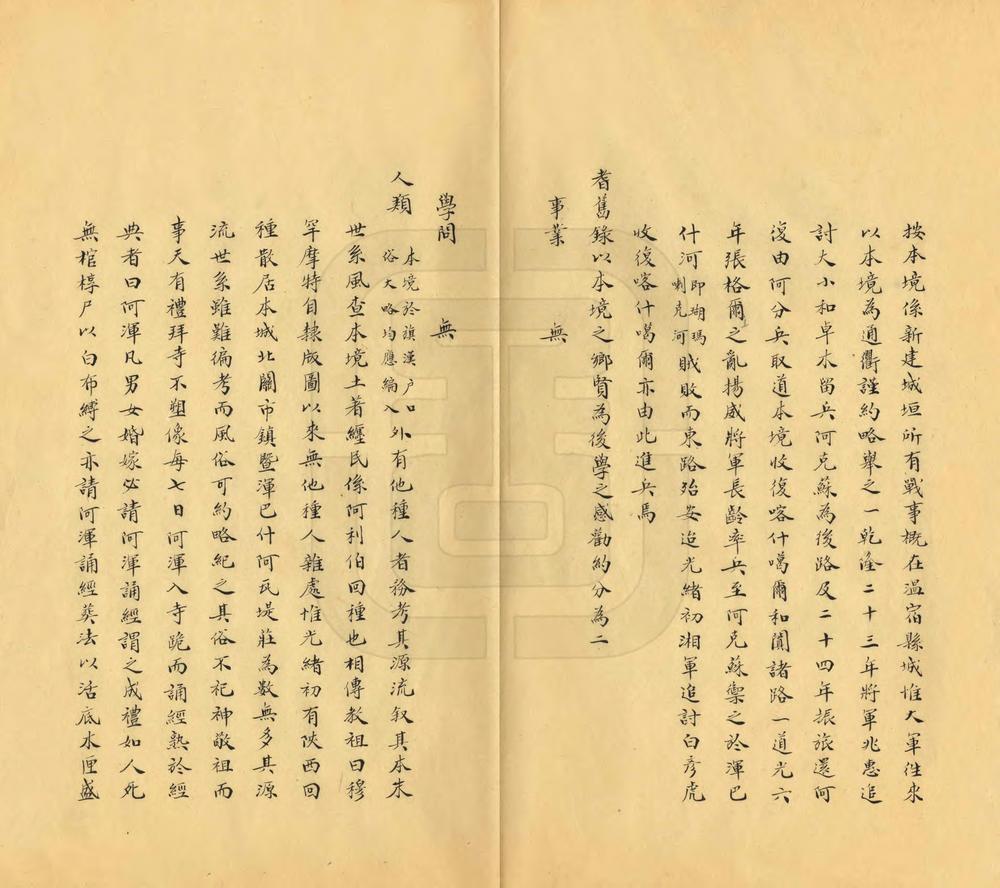 按本境係新建城垣所有戰事概在溫宿縣城惟大軍往來
以本境為通衢謹約略舉之一乾隆二十三年將軍兆惠追
討大小和卓木留兵阿克蘇為後路及二十四年振旅還阿
復由阿分兵取道本境收復喀什噶爾和闐諸路一道光六
年張格爾之亂揚威將軍長齡率兵至阿克蘇禦之於渾巴
什河即瑚瑪喇克河賊敗而東路始安迨光緒初湘軍追討白彥虎
收復喀什噶爾亦由此進兵焉
耆舊錄以本境之鄉賢為後學之感勸約分為二
事業 無
學問 無
人類本境於旗漢戶口俗大略均應編入外有他種人者務考其源流叙其本末
世系風查本境土著纏民係阿利伯回種也相傳教祖曰穆
罕摩特自隸版圖以來無他種人雜處惟光緒初有陝西回
種散居本城北關市鎮暨渾巴什阿瓦堤莊為數無多其源
流世系雖難徧考而風俗可約略紀之其俗不祀神敬祖而
事天有禮拜寺不塑像每七日阿渾入寺跪而誦經熟於經
典者曰阿渾凡男女婚嫁必請阿渾誦經謂之成禮如人死
無棺槨尸以白布縛之亦請阿渾誦經葬法以活底木匣盛